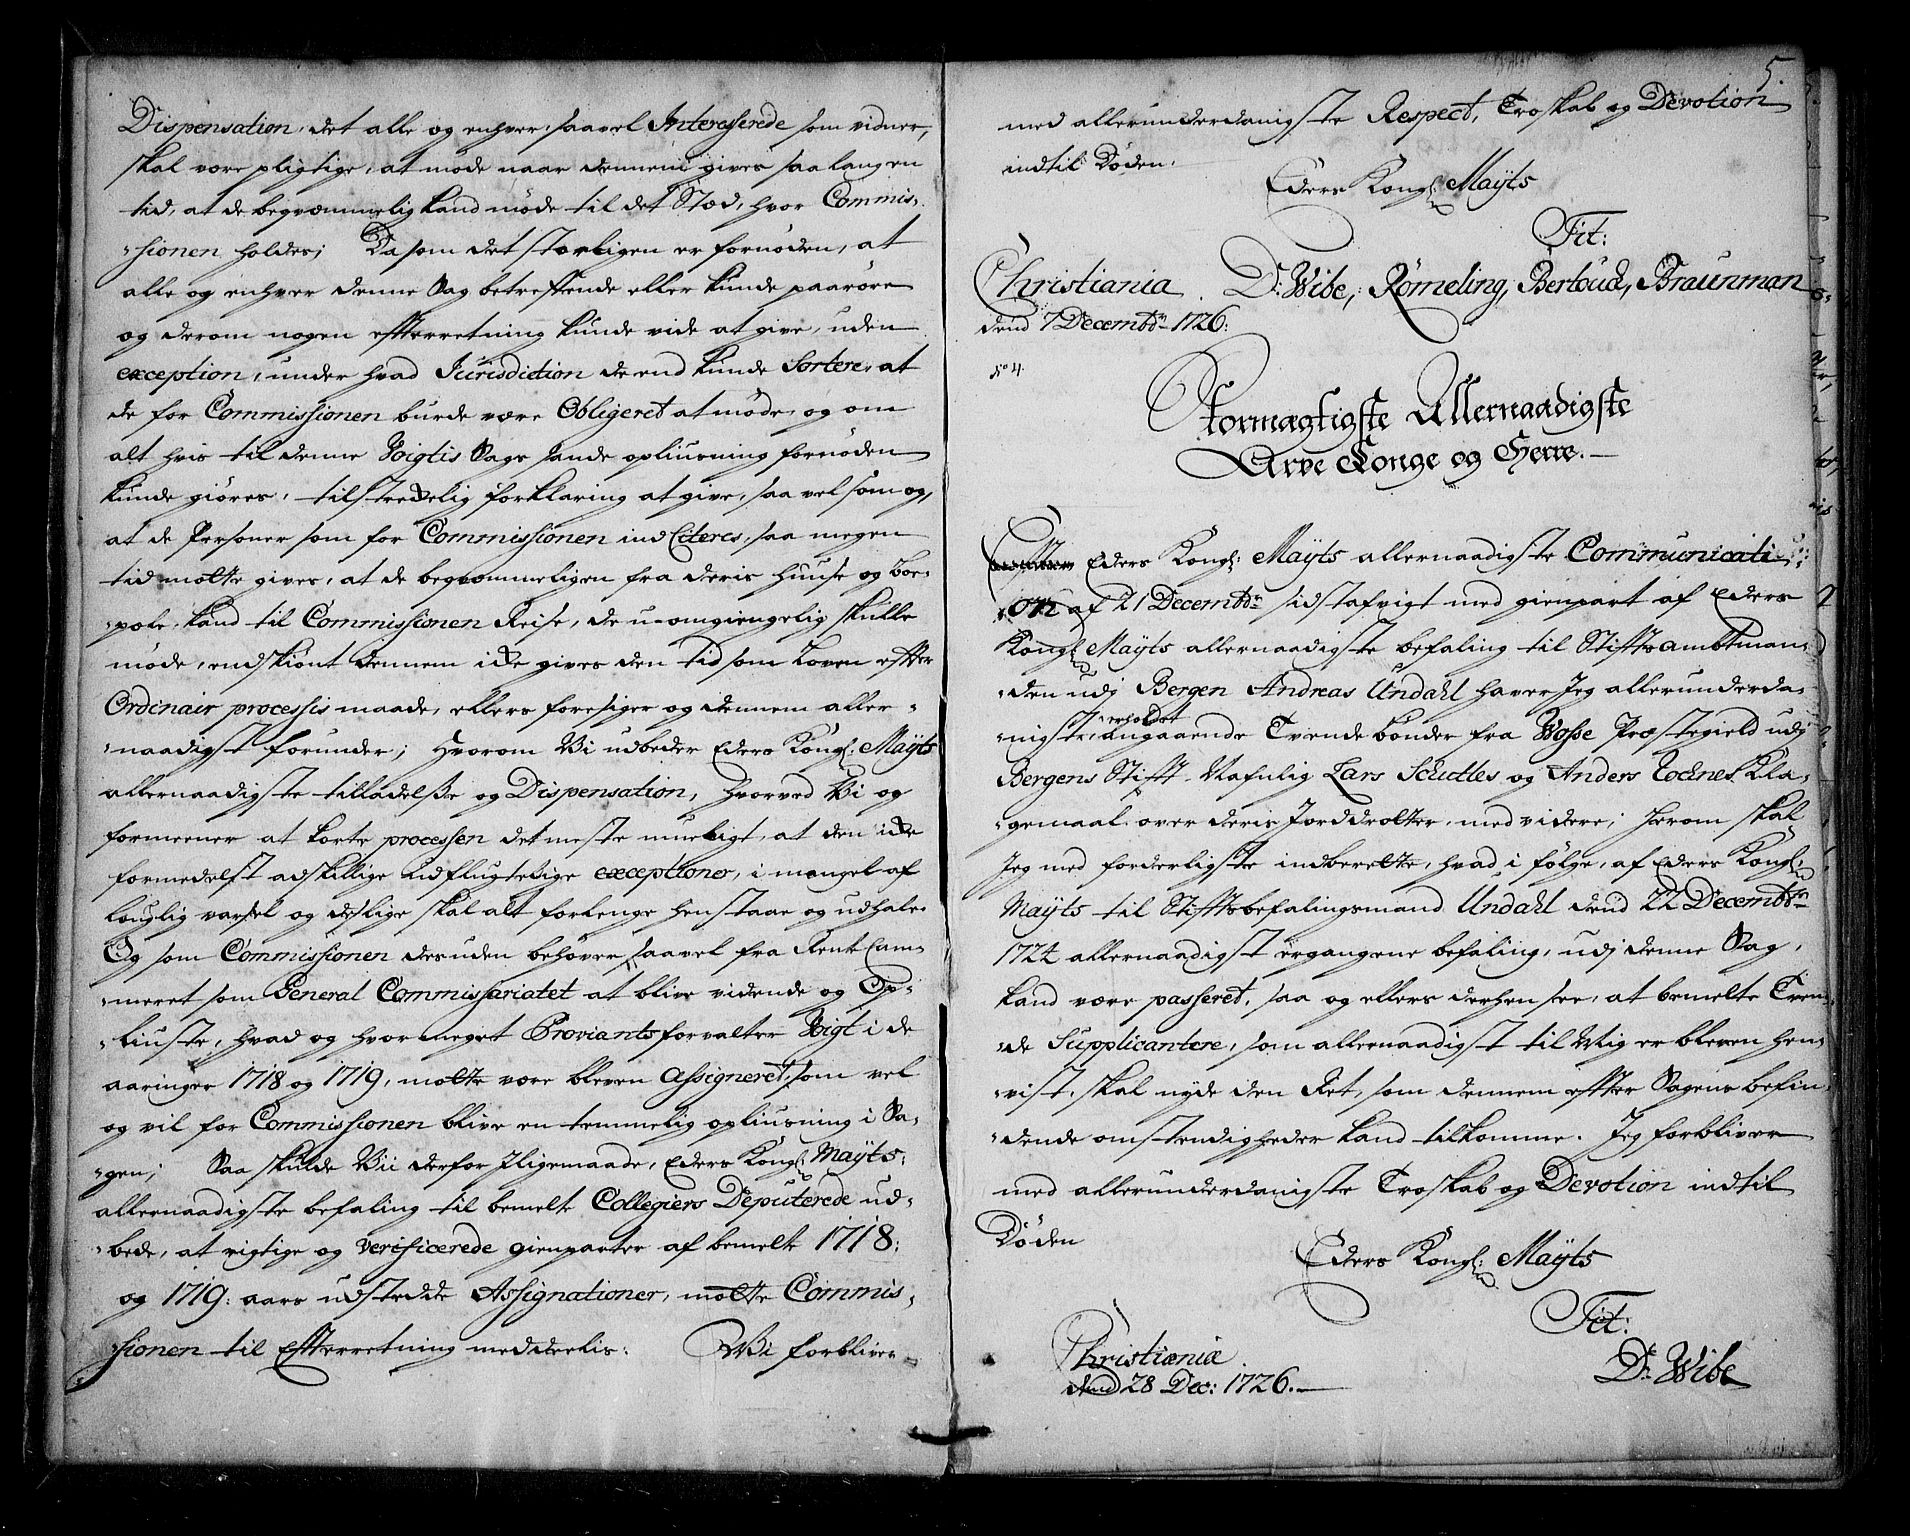 Dispensation, det alle og enhver, saavel Interesserede som vidner,
skal være pligtige, at møde naar dennem gives saa lang en
tid, at de beqvæmmelig kand møde til det Stæd, hvor Commis-
sionen holdes; Da som det storligen er fornøden, at
alle og enhver denne Sag betreffende eller kunde paarøre
og derom nogen efterretning kunde vide at give, uden
exception, under hvad Jurisdiction de end kunde Sortere, at
de for Commissionen burde være Obligeret at møde, og om
alt hvis til denne Voigtis Sags sande opliusning fornøden
kunde giøres, tilstreckelig forklaring at give, saa vel som og,
at de Personer som for Commissionen ind Citeres, saa megen
tid motte gives, at de beqvemmeligen fra deris huuse og Boe-
pæle kand til Commissionen Reise, de u-omgiengelig skulle
møde, endskiønt dennem icke gives den tid som Loven efter
Ordinair processis maade, ellers foresiger og dennem aller-
naadigst forunder; Hvorom Vi udbeder Eders Kongl: Mayts
allernaadigste tilladelse og Dispensation, hvorved Vi og
formeener at korte processen det meste mueligt, at den icke
formedelst adskillige udflugtedige exceptioner, i mangel af
louglig varsel og deslige skal alt forlenge henstaae og udhale.
Og som Commissionen desuden behøver, saavel fra Rent Cam-
meret som General Commissariatet at blive vidende og Op-
liuste, hvad og hvormeget Proviantsforvalter Voigt i de
aaringer 1718 og 1719, motte være bleven Assigneret, som vel
og vil for Commissionen blive en temmelig opliusning i Sa-
gen; Saa skulde Vii derfor Iligemaade, Eders Kongl: Mayts:
allernaadigste befaling til bemelte Collegiers Deputerede ud-
bede, at rigtige og verificerede gienparter af bemelte 1718:
og 1719: aars udstedde Assignationer, motte Commis-
sionen til Efterretning meddeelis: Vi forbliver
5.
med allerunderdanigste Respect, Troskab og Devotion
indtil Døden.
Eders Kongl: Mayts
Tit:
Christiania D: Wibe, Römeling, Bertouch, Braunman
dend 7 Decembr 1726:
No 4.
Stormægtigste Allernaadigste
Arve Konge og Herre.
Eders Kongl: Mayts allernaadigste Communicati-
on af 21 Decembr sidstafvigt med gienpart af Eders
Kongl Mayts allernaadigste befaling til Stiftsambtman-
den udj Bergen Andreas Undahl haver Jeg allerunderda-
nigst erholdet angaaende Tvende bønder fra Wosse Præstegield udj
Bergens Stift Nafnlig Lars Scuttes og Anders Kla-
gemaal over deris Jorddrotter, med videre; Herom skal
Jeg med forderligste indberette, hvad, i følge, af Eders Kongl:
Mayts til Stiftsbefalingsmand Undahl dend 22 Decembr
1724 allernaadigst ergangene befaling, udj denne Sag,
kand være passeret, saa og ellers derhen see, at bemelte Tven-
de Supplicantere, som allernaadigst til Mig er bleven hen-
vist, skal nyde den Ret, som dennem efter Sagens befin-
dende omstendigheder kand tilkomme. Jeg forbliver
med allerunderdanigste Troskab og Devotion indtil
Døden
Eders Kongl: Mayts
Tit:
Christiania
dend 28 Dec: 1726. D: Wibe